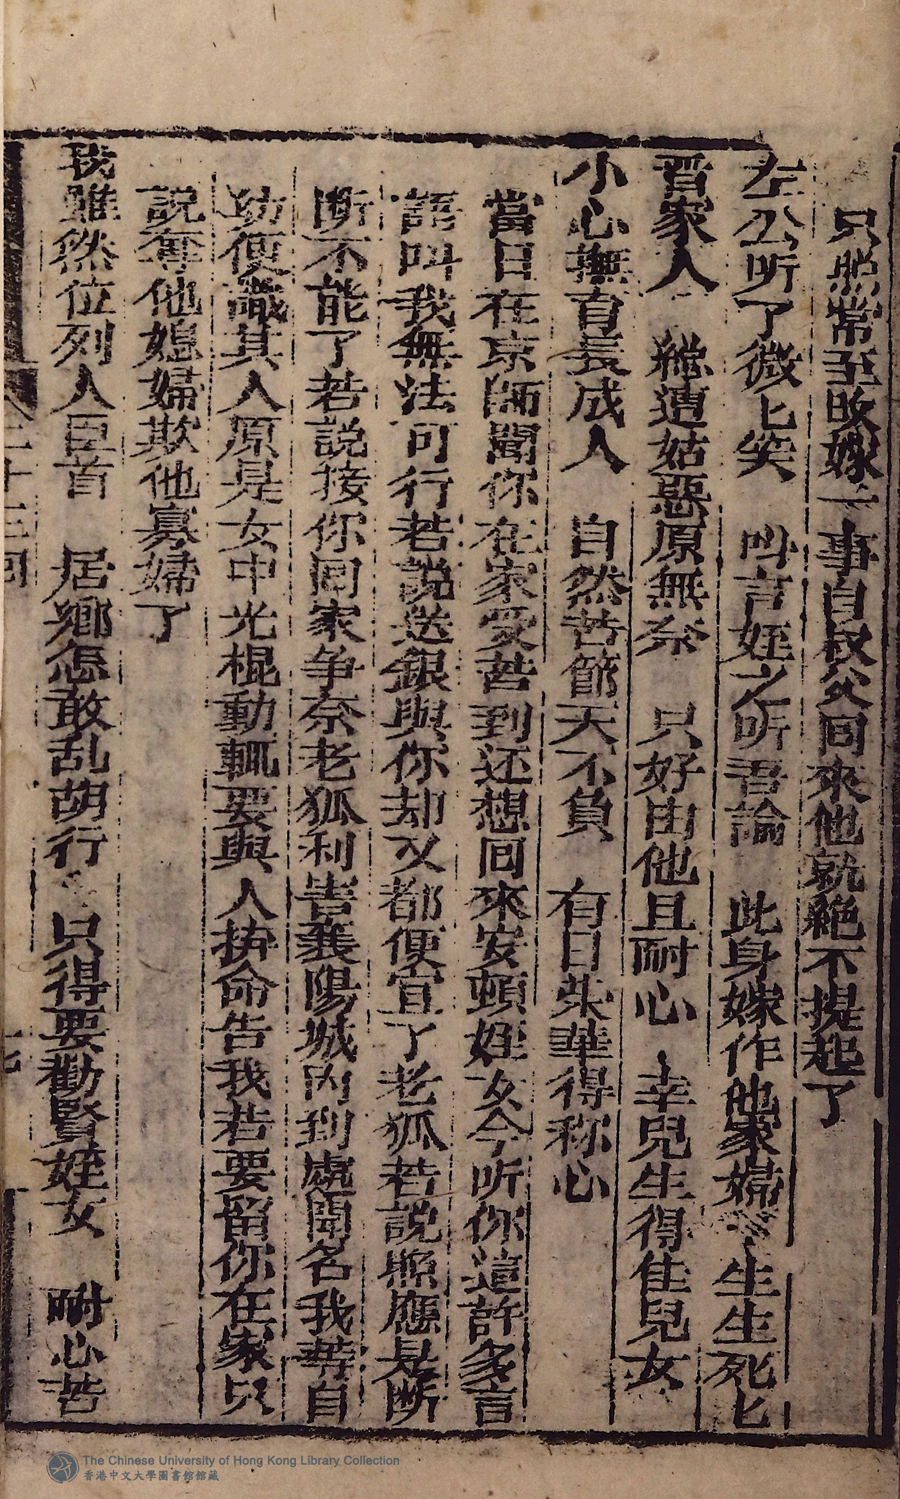 只照常至改嫁一事自叔父囘來他就絶不提起了
左公听了微匕笑　叫言姪之听吾論　此身嫁作他家婦　生生死匕
晋家人　縱遭姑惡原無奈　只好由他且耐心　幸兒生得佳兒女
小心撫育長成人　自然苦節天不負　有日荣華得称心
當日在京師聞你在家受苦到还想囘來安頓姪女今听你這許多言
語叫我無法可行若說送銀與你却又都便宜了老狐若說照應是断
断不能了若説接你囘家争奈老狐利害襄陽城内到處聞名我等自
幼便識其人原是女中光棍動輒要與人拚命告我若要留你在家只
説奪他媳婦欺他寡婦了
我雖然位列人臣首　居鄉怎敢乱胡行　只得要勸賢姪女　耐心苦
二十三囘
The Chinese University of Hong Kong Library Collection
香港中文大學圖書館館藏